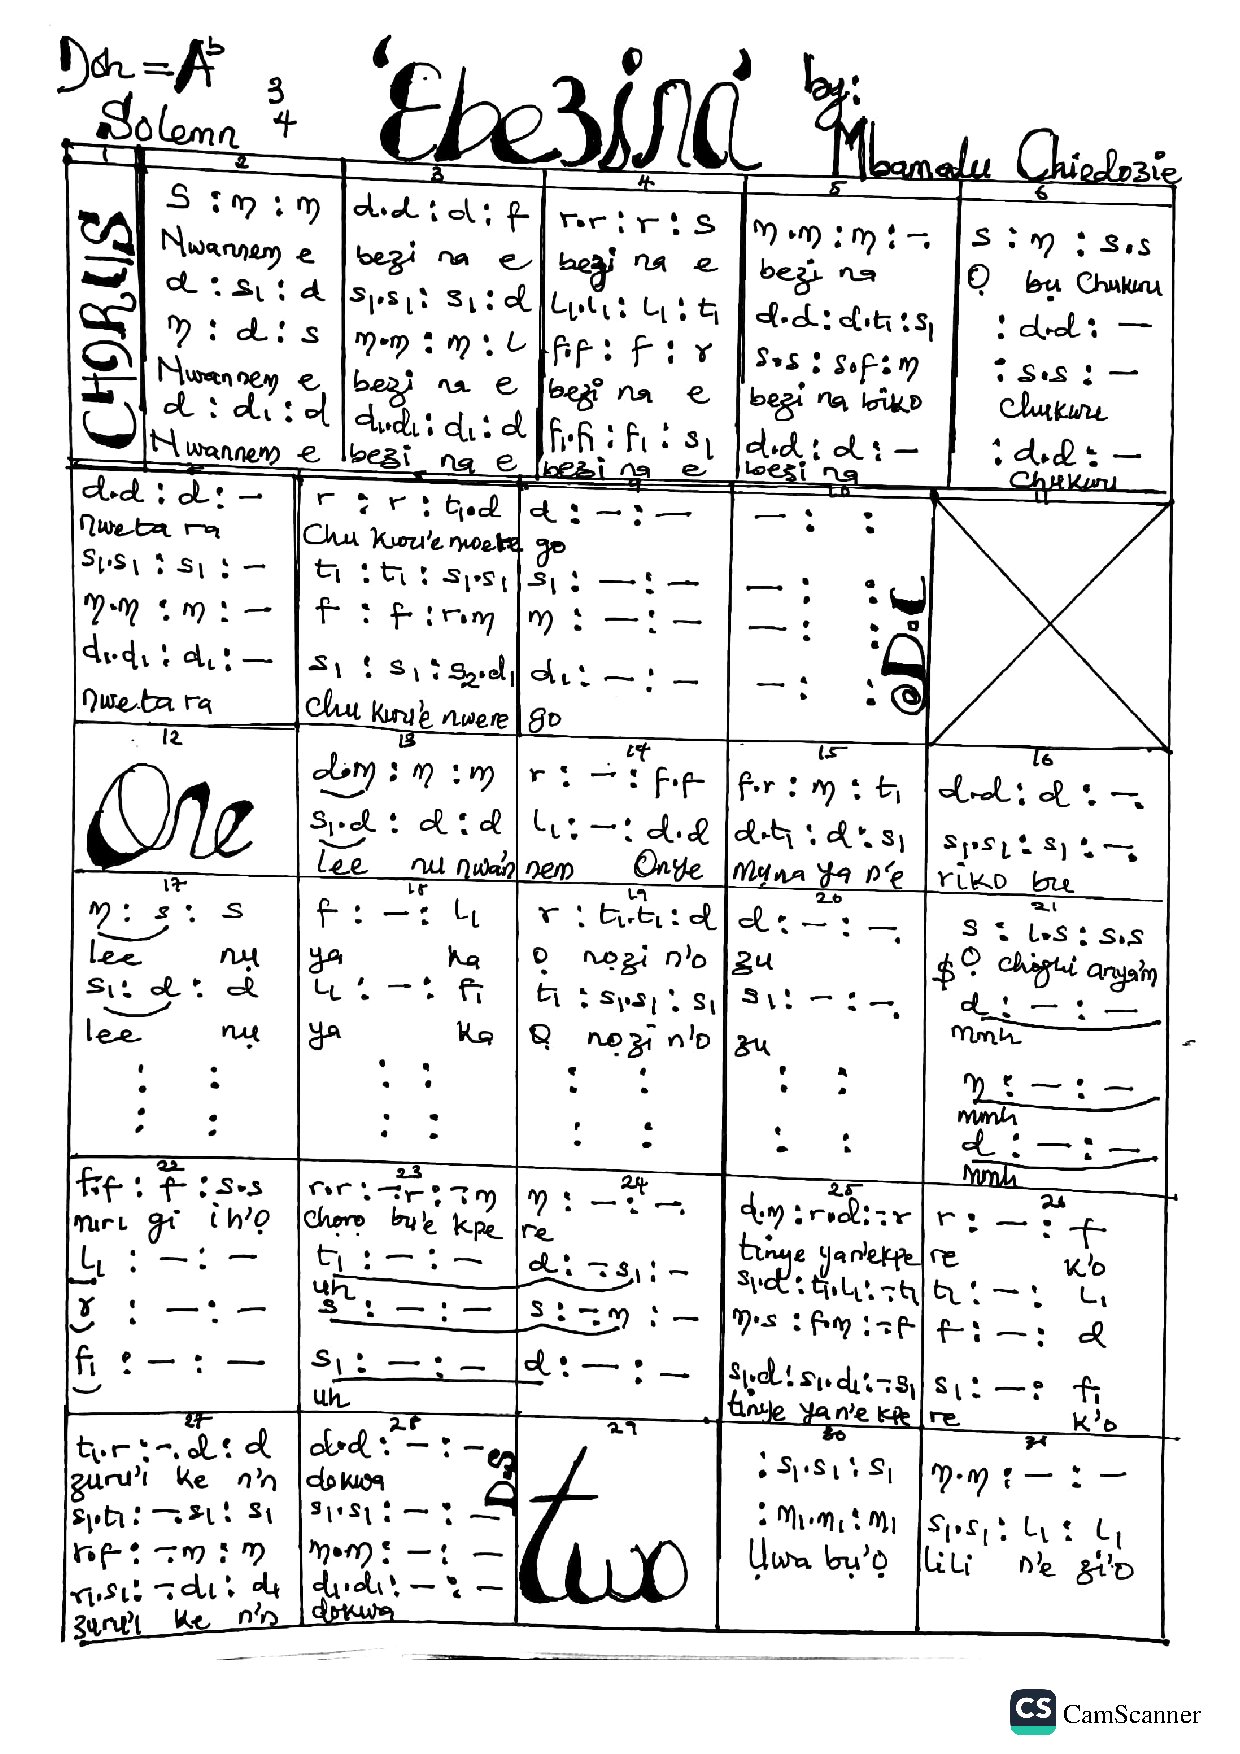 Doh = Ab
Solemn 3/4
'Ebezina'
by: Mbamalu Chiedozie
1
CHORUS
2
S : m : m
Nwannem e
d : s₁ : d
m : d : s
Nwannem e
d : d₁ : d
Nwannem e
3
d.d : d : f
bezi na e
s₁.s₁ : s₁ : d
m.m : m : l
bezi na e
d₁.d₁ : d₁ : d
bezi na e
4
r.r : r : s
bezi na e
l₁.l₁ : l₁ : t₁
f.f : f : r
bezi na e
f₁.f₁ : f₁ : s₁
bezi na e
5
m.m : m : -.
bezi na
d.d : d.t₁ : s₁
s.s : s.f : m
bezi na biko
d.d : d : —
bezi na
6
s : m : s.s
Ọ bụ Chukwu
: d.d : —
: s.s : —
Chukwu
: d.d : —
Chukwu
d.d : d : —
nweta ra
s₁.s₁ : s₁ : —
m.m : m : —
d₁.d₁ : d₁ : —
nweta ra
r : r : t₁.d
Chu kwu'e nwete
t₁ : t₁ : s₁.s₁
f : f : r.m
s₁ : s₁ : s₂.d₁
chu kwu'e nwere
9
d : — : —
go
s₁ : — : —
m : — : —
d₁ : — : —
go
10
— : :
— : :
— : :
— : :
@D.C
11
12
One
13
d.m : m : m
s₁.d : d : d
lee nu nwan
14
r : — : f.f
l₁ : — : d.d
nem Onye
15
f.r : m : t₁
d.t₁ : d : s₁
Mụna ya n'e
16
d.d : d : —.
s₁.s₁ : s₁ : —.
riko bu
17
m : s : s
lee nụ
s₁ : d : d
lee nụ
: :
: :
18
f : — : l₁
ya ka
l₁ : — : f₁
ya ka
: :
: :
19
r : t₁.t₁ : d
Ọ nọzi n'o
t₁ : s₁.s₁ : s₁
Ọ nọzi n'o
: :
: :
20
d : — : —.
zu
s₁ : — : —.
zu
: :
: :
21
s : l.s : s.s
$ Ọ chọghi anya'm
d : — : —
mmh
m : — : —
mmh
d : — : —
mmh
22
f.f : f : s.s
miri gi ih'Ọ
l₁ : — : —
r : — : —
f₁ : — : —
23
r.r : -.r : -.m
chọrọ bụ'e kpe
t₁ : — : —
uh
s : — : —
s₁ : — : —
uh
24
m : — : —.
re
d : -.s₁ : —
s : -.m : —
d : — : —
25
d.m : r.d : -.r
tinye ya n'ekpe
s₁.d : t₁.l₁ : -.t₁
m.s : f.m : -.f
s₁.d : s₁.d₁ : -.s₁
tinye ya n'e kpe
26
r : — : f
re k'o
t₁ : — : l₁
f : — : d
s₁ : — : f₁
re k'o
27
t₁.r : -.d : d
zuru'i ke n'n
s₁.t₁ : -.s₁ : s₁
r.f : -.m : m
r₁.s₁ : -.d₁ : d₁
zuru'i ke n'n
28
d.d : — : —
dokwa
s₁.s₁ : — : —
m.m : — : —
d₁.d₁ : — : —
dokwa
D.S
29
two
30
: s₁.s₁ : s₁
: m₁.m₁ : m₁
Ụwa bụ'Ọ
31
m.m : — : —
s₁.s₁ : l₁ : l₁
lili n'e gi'o
CS CamScanner